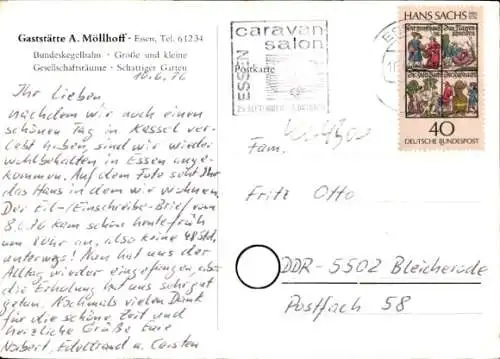 Gaststätte A. Möllhoff · Essen, Tel. 61234
Bundeskegelbahn · Große und kleine
Gesellschaftsräume · Schattiger Garten
10.6.76
Ihr Lieben
nachdem wir noch einen
schönen Tag in Kassel ver-
lebt haben, sind wir wieder
wohlbehalten in Essen ange-
kommen. Auf dem Foto seht Ihr
das Haus in dem wir wohnen.
Der Eil-/Einschreibe-Brief vom
8.6.76 kam schon heute früh
um 8 Uhr an, also keine 48 Std.
unterwegs! Nun hat uns der
Alltag wieder eingefangen, aber
die Erholung hat uns sehr gut
getan. Nochmals vielen Dank
für die schöne Zeit und
herzliche Grüße Eure
Norbert, Edeltraud u. Carsten
Postkarte
ESSEN
caravan
salon
HANS SACHS
40
DEUTSCHE BUNDESPOST
Fam.
Fritz Otto
DDR-5502 Bleicherode
Postfach 58